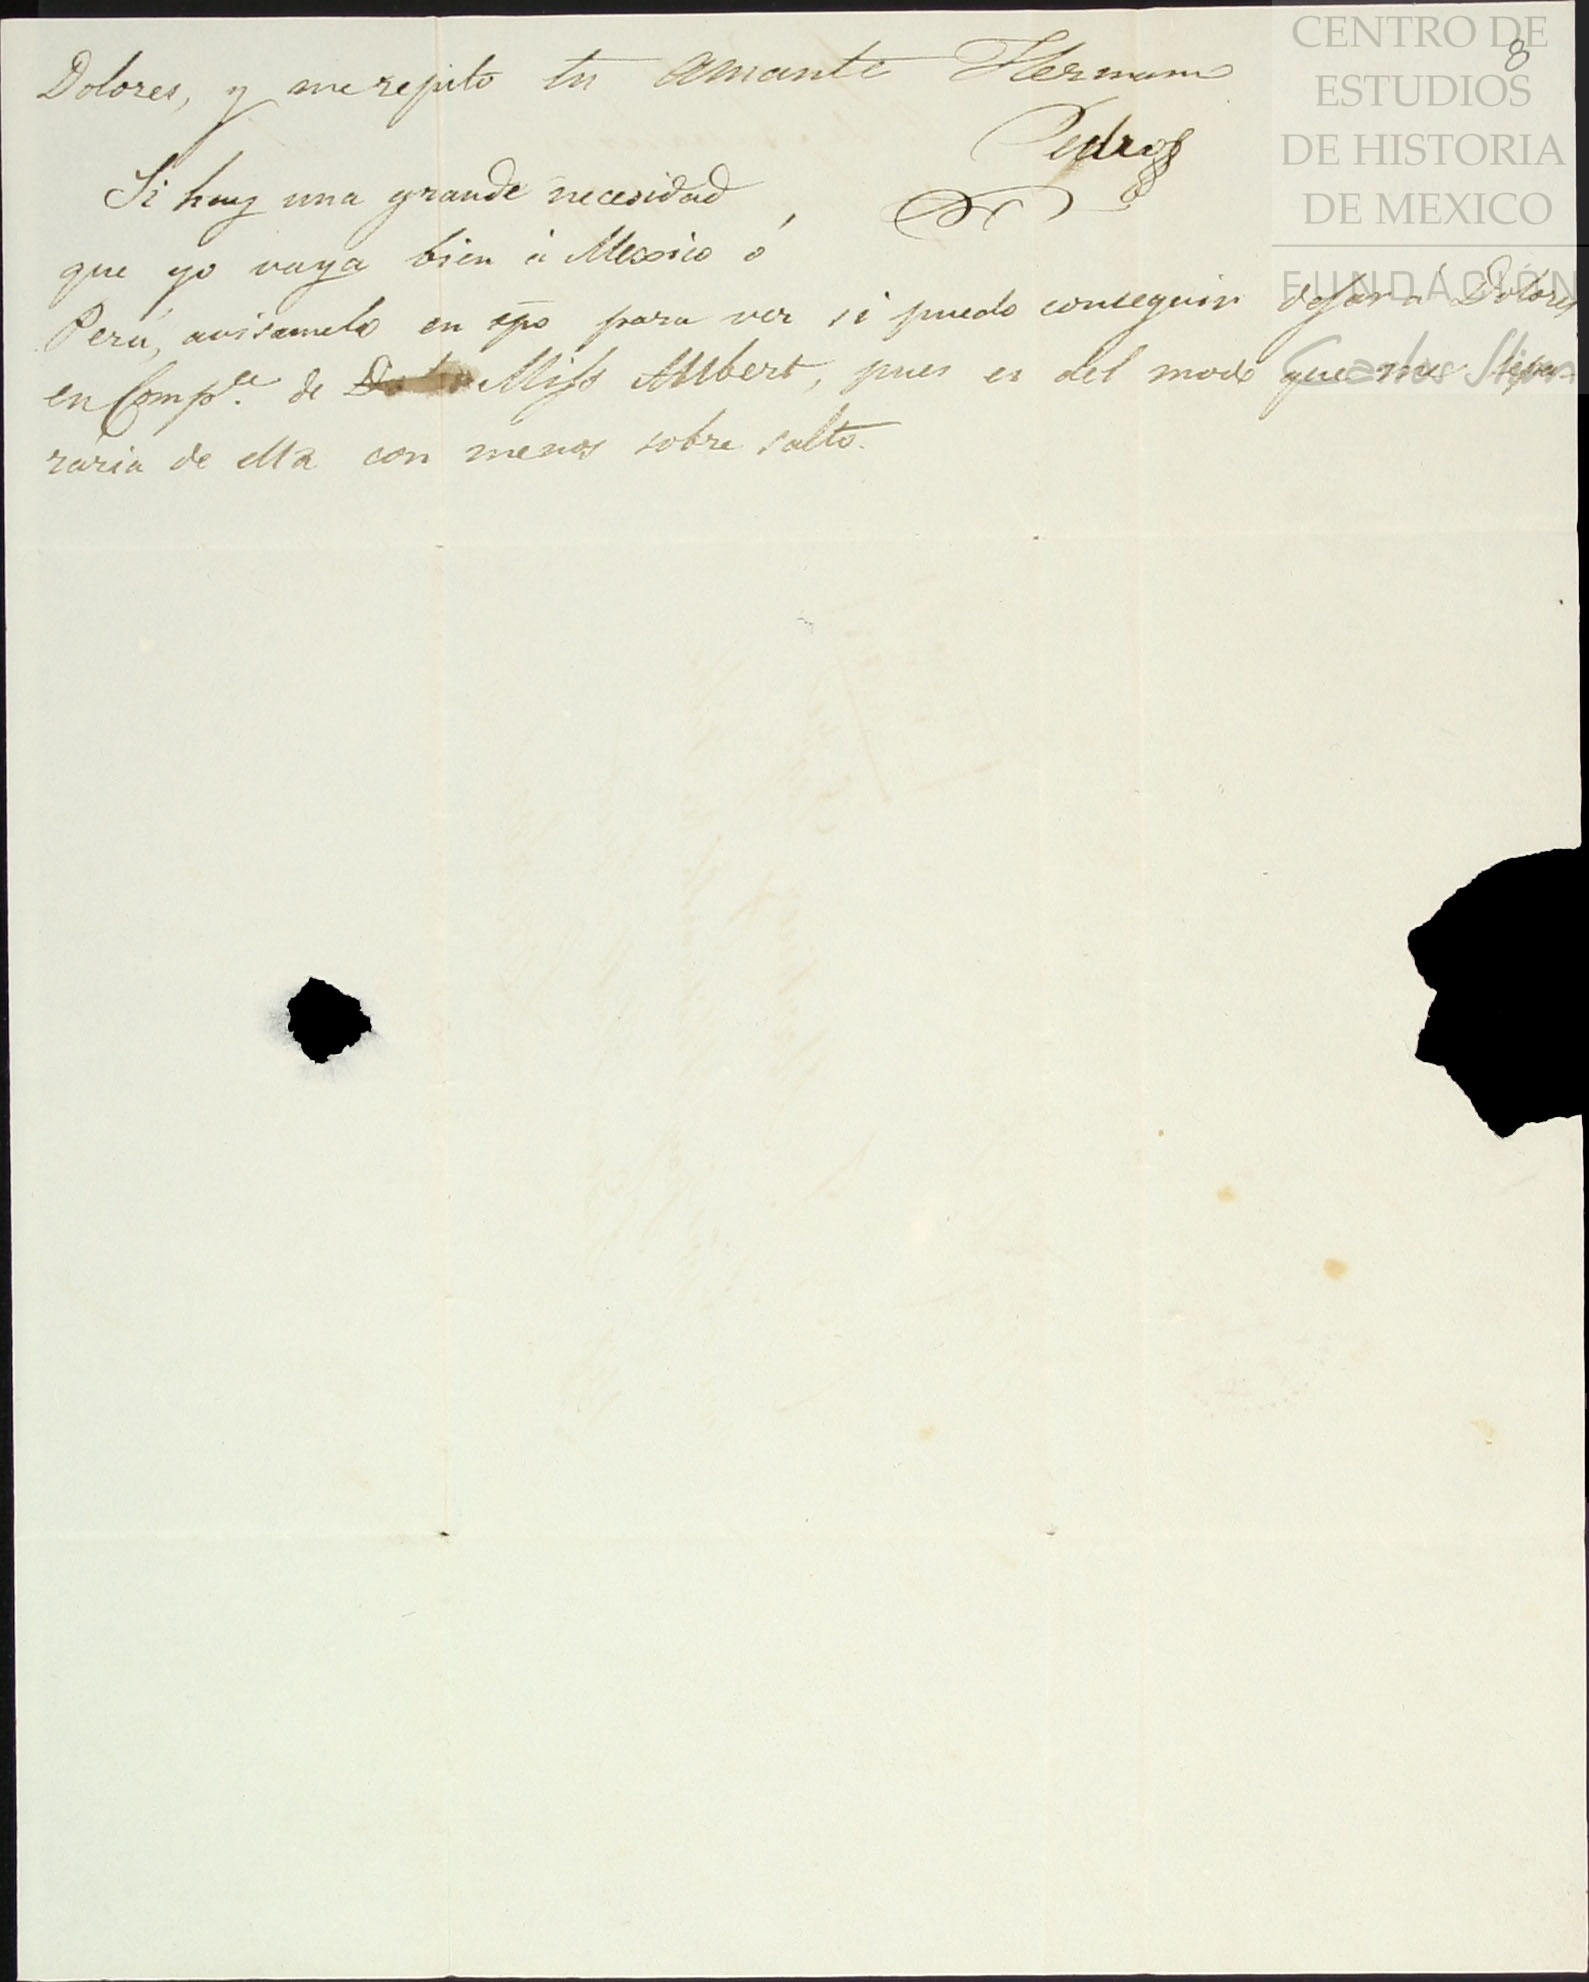 8
Dolores, y me repito tu amante Hermano
Pedro
Si hay una grande necesidad
que yo vaya bien á Mexico ó
Perú, avisamelo en tpo para ver si puedo conseguir dejar á Dolores
en Comp.ª de Miss Allbert, pues es del modo que me sepa-
raria de ella con menos sobre salto.
CENTRO DE
ESTUDIOS
DE HISTORIA
DE MEXICO
FUNDACIÓN
Carlos Slim